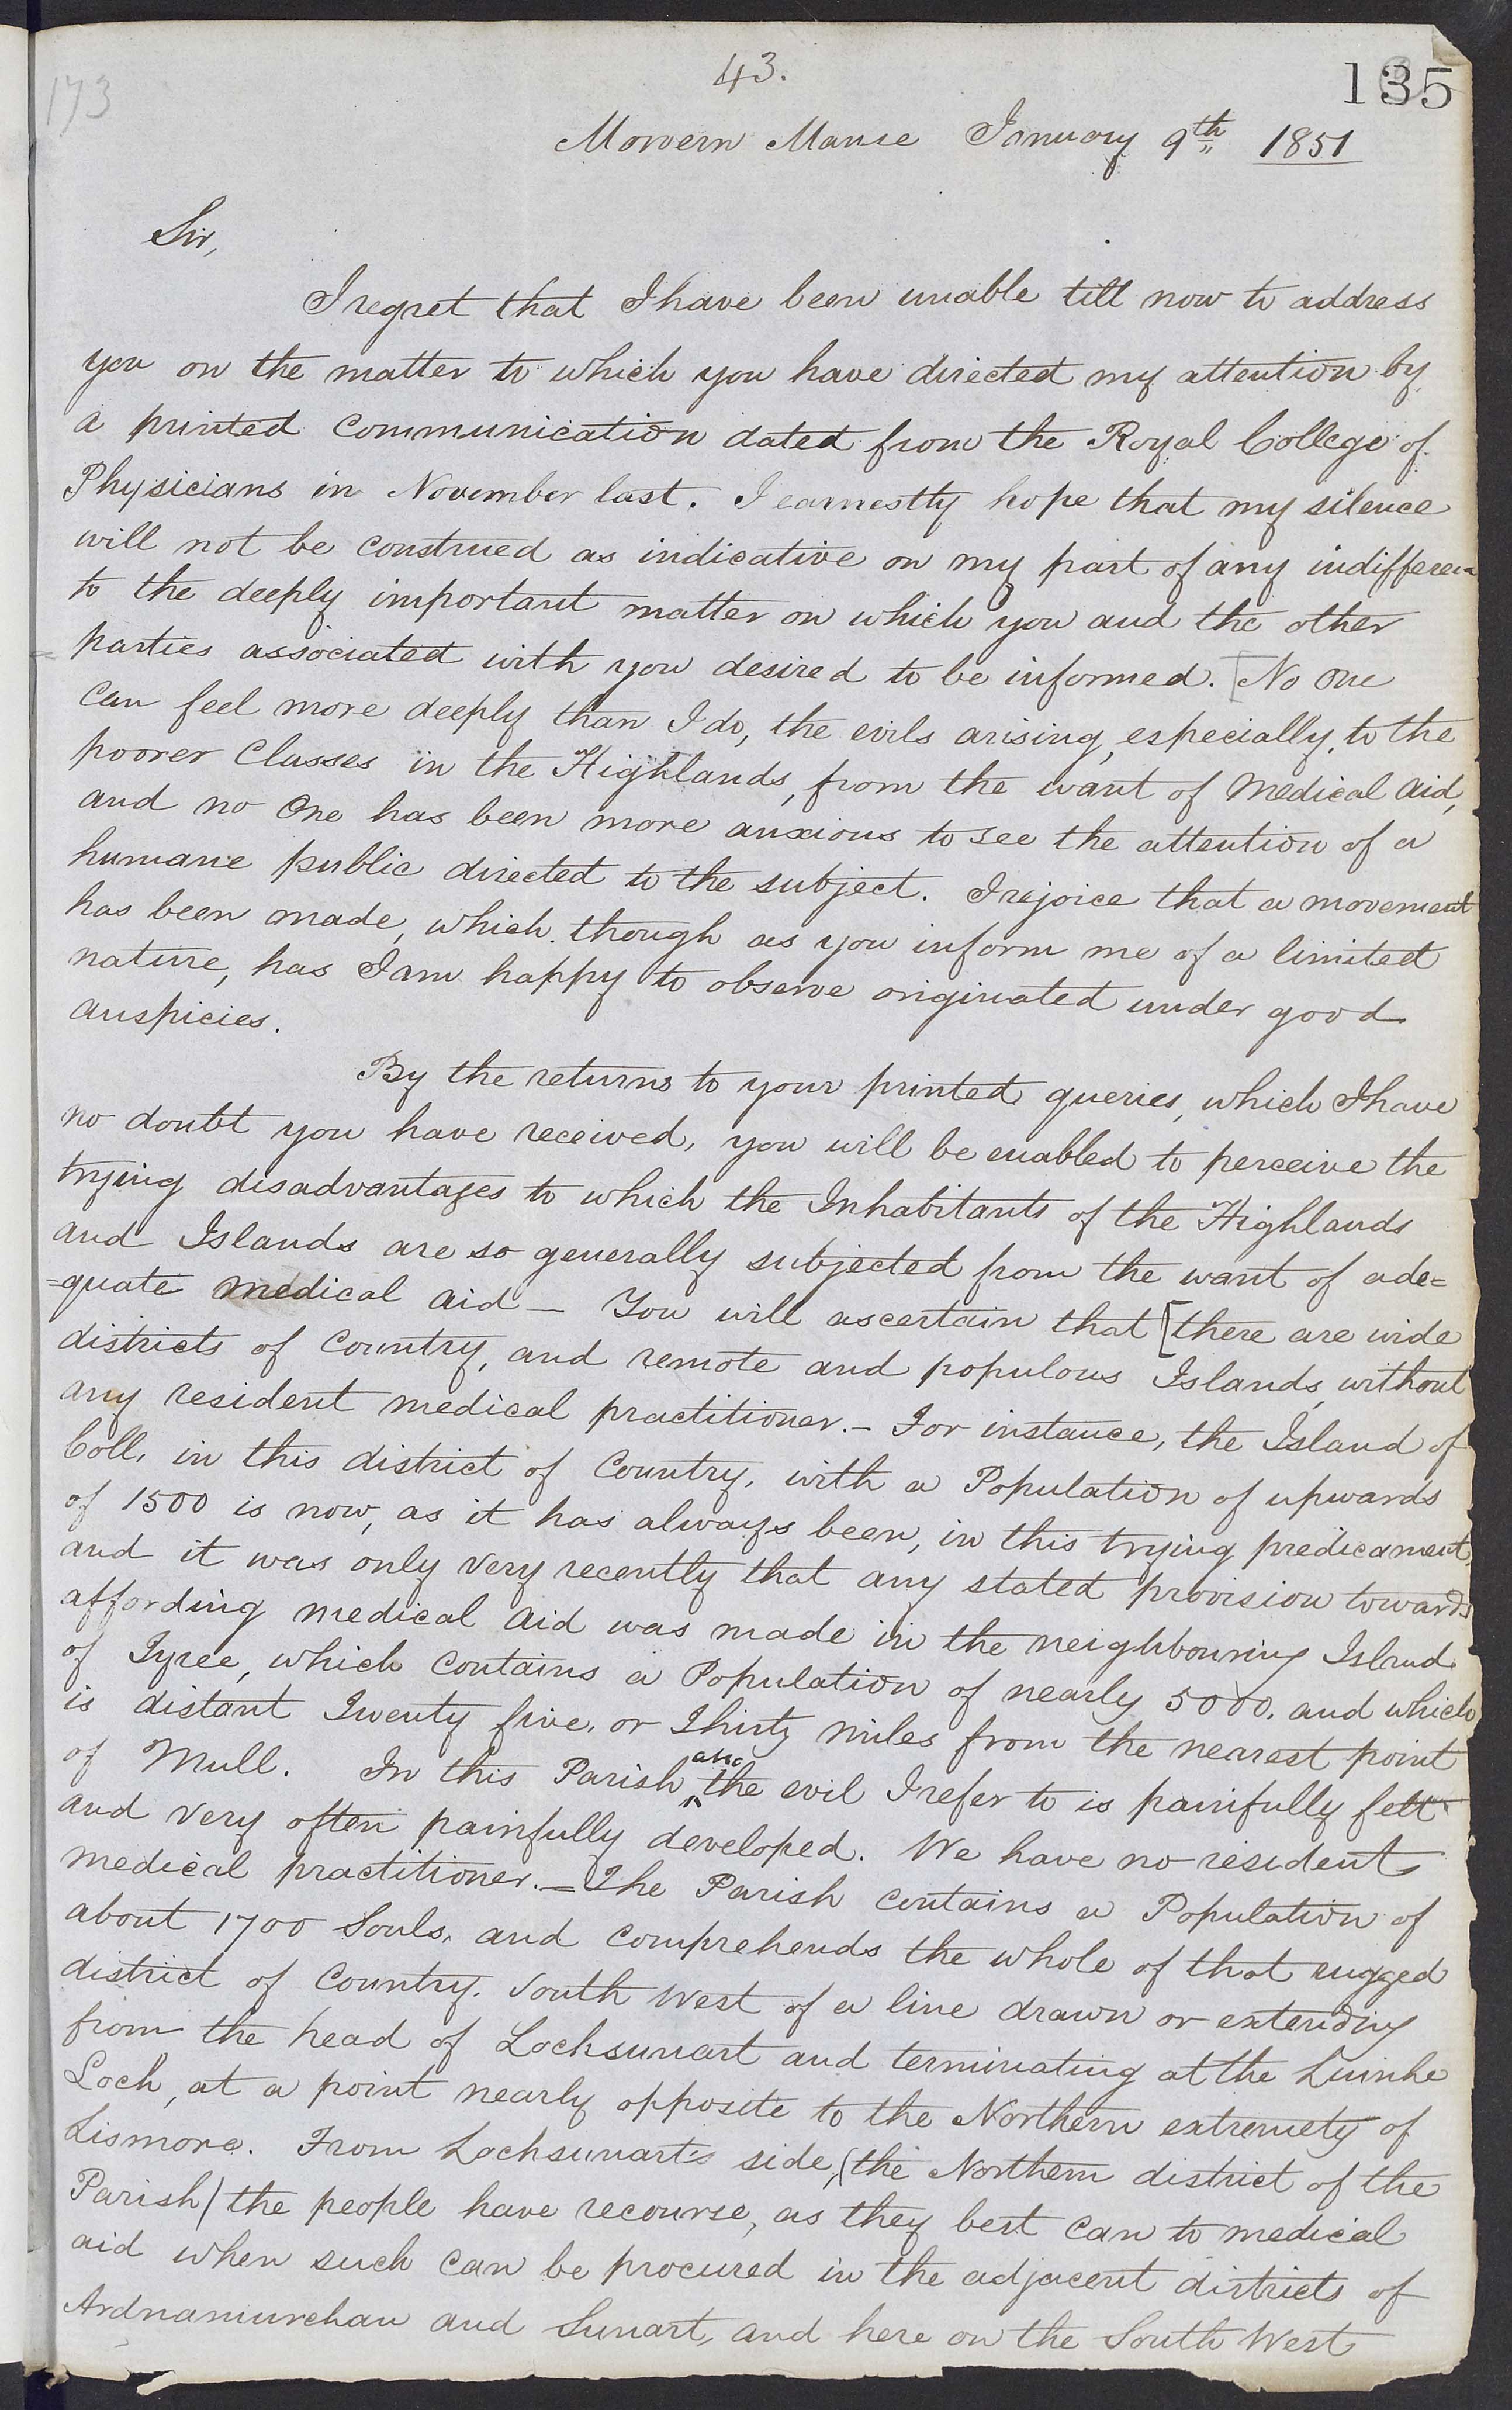 43.
135
173
Morvern Manse January 9th 1851
Sir,
I regret that I have been unable till now to address
you on the matter to which you have directed my attention by
a printed Communication dated from the Royal College of
Physicians in November last. I earnestly hope that my silence
will not be construed as indicative on my part of any indifferen
to the deeply important matter on which you and the other
parties associated with you desired to be informed. [No one
can feel more deeply than I do, the evils arising, especially, to the
poorer Classes in the Highlands, from the want of medical aid,
and no One has been more anxious to see the attention of a
humane public directed to the subject. I rejoice that a movement
has been made, which though as you inform me of a limited
nature, has I am happy to observe originated under good
auspicies.
By the returns to your printed queries, which I have
no doubt you have received, you will be enabled to perceive the
trying disadvantages to which the Inhabitants of the Highlands
and Islands are so generally subjected from the want of ade=
=quate medical aid — You will ascertain that [there are wide
districts of Country, and remote and populous Islands, without
any resident medical practitioner. — For instance, the Island of
Coll, in this district of Country, with a Population of upwards
of 1500 is now, as it has always been, in this trying predicament,
and it was only very recently that any stated provision towards
affording medical aid was made in the neighbouring Island
of Tyree, which Contains a Population of nearly 5000, and which
is distant Twenty five, or Thirty miles from the nearest point
of Mull. In this Parish also the evil I refer to is painfully felt
and very often painfully developed. We have no resident
medical practitioner. — The Parish contains a Population of
about 1700 Souls, and Comprehends the whole of that rugged
district of Country. South West of a line drawn or extending
from the head of Lochsunart and terminating at the Luinhe
Loch, at a point nearly opposite to the Northern extremety of
Lismore. From Lochsunart's side, (the Northern district of the
Parish) the people have recourse, as they best can to medical
aid when such can be procured in the adjacent districts of
Ardnamurchan and Sunart, and here on the South West